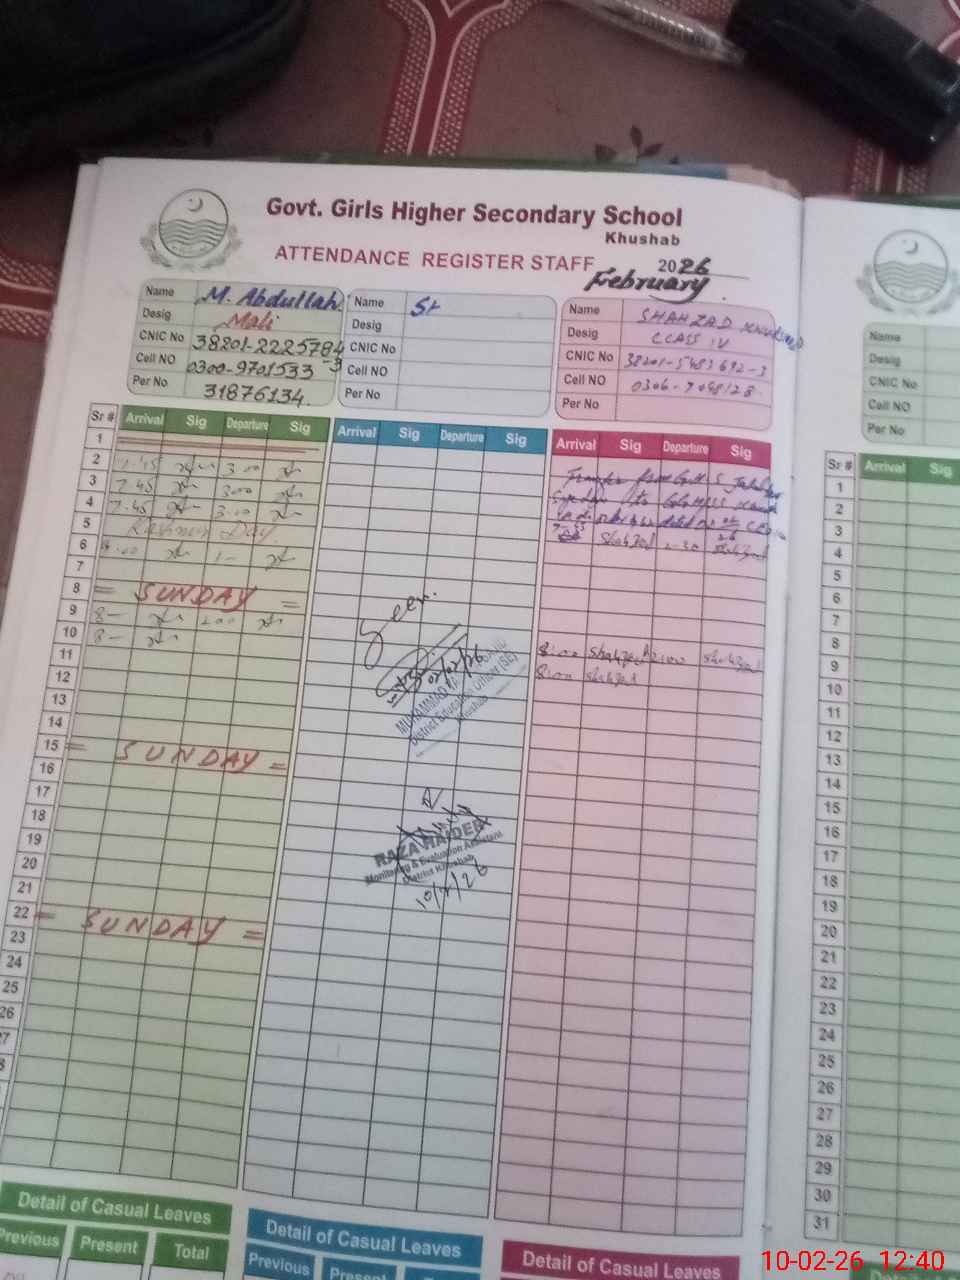 Govt. Girls Higher Secondary School
Khushab
ATTENDANCE REGISTER STAFF 2026
February
Name M. Abdullah
Desig Mali
CNIC No 38201-2225784-3
Cell NO 0300-9701533
Per No 31876134
Name St
Desig
CNIC No
Cell NO
Per No
Name SHAHZAD
Desig CLASS IV
CNIC No
Cell NO
Per No
Name
Desig
CNIC No
Cell NO
Per No
Sr # Arrival Sig Departure Sig
Arrival Sig Departure Sig
Arrival Sig Departure Sig
Sr # Arrival Sig
1
2 7.45 3.00
3 7.45 3.00
4 7.45 3.00
5 Kashmir Day
6 8.00 1-
7
8 = SUNDAY =
9 8- 2.00
10 8-
11
12
13
14
15 = SUNDAY =
16
17
18
19
20
21
22 = SUNDAY =
23
24
25
26
Transfer from
to
Shahzad 2-30 Shahzad
8:00 Shahzad 2:00 Shahzad
8:00 Shahzad
Seen.
02/26
MUHAMMAD
District Education Officer (SE)
Khushab
RAZA HAIDER
Monitoring & Evaluation Assistant
District Khushab
10/2/26
1
2
3
4
5
6
7
8
9
10
11
12
13
14
15
16
17
18
19
20
21
22
23
24
25
26
27
28
29
30
31
Detail of Casual Leaves
Previous Present Total
Detail of Casual Leaves
Previous Present
Detail of Casual Leaves
10-02-26 12:40